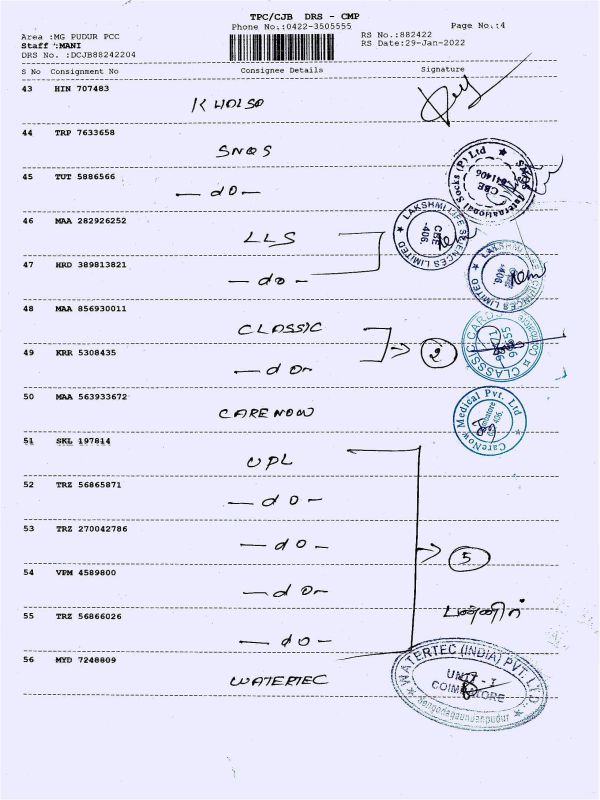 TPC/CJB DRS - CMP
Phone No.:0422-3505555
Page No.:4
Area :MG PUDUR PCC
RS No.:882422
Staff :MANI
RS Date:29-Jan-2022
DRS No. :DCJB88242204
S No Consignment No Consignee Details Signature
43 HIN 707483
KHOLSO
44 TRP 7633658
SNQS
45 TUT 5886566
— do —
SNQS International Socks (P) Ltd ★
CBE
641406
46 MAA 282926252
LLS
★ LAKSHMI LIFE SCIENCES LIMITED
CBE
-406.
47 HRD 389813821
— do —
★ LAKSHMI LIFE SCIENCES LIMITED
-406.
48 MAA 856930011
CLASSIC
2
49 KRR 5308435
— do —
CLASSIC CARDS
50 MAA 563933672
CARENOW
★ CareNow Medical Pvt. Ltd
Coimbatore
51 SKL 197814
UPL
52 TRZ 56865871
— do —
53 TRZ 270042786
— do —
5
54 VPM 4589800
— do —
55 TRZ 56866026
— do —
பன்னீர்
56 MYD 7248809
WATERTEC
★ WATERTEC (INDIA) PVT. LTD. ★
UNIT - I
COIMBATORE